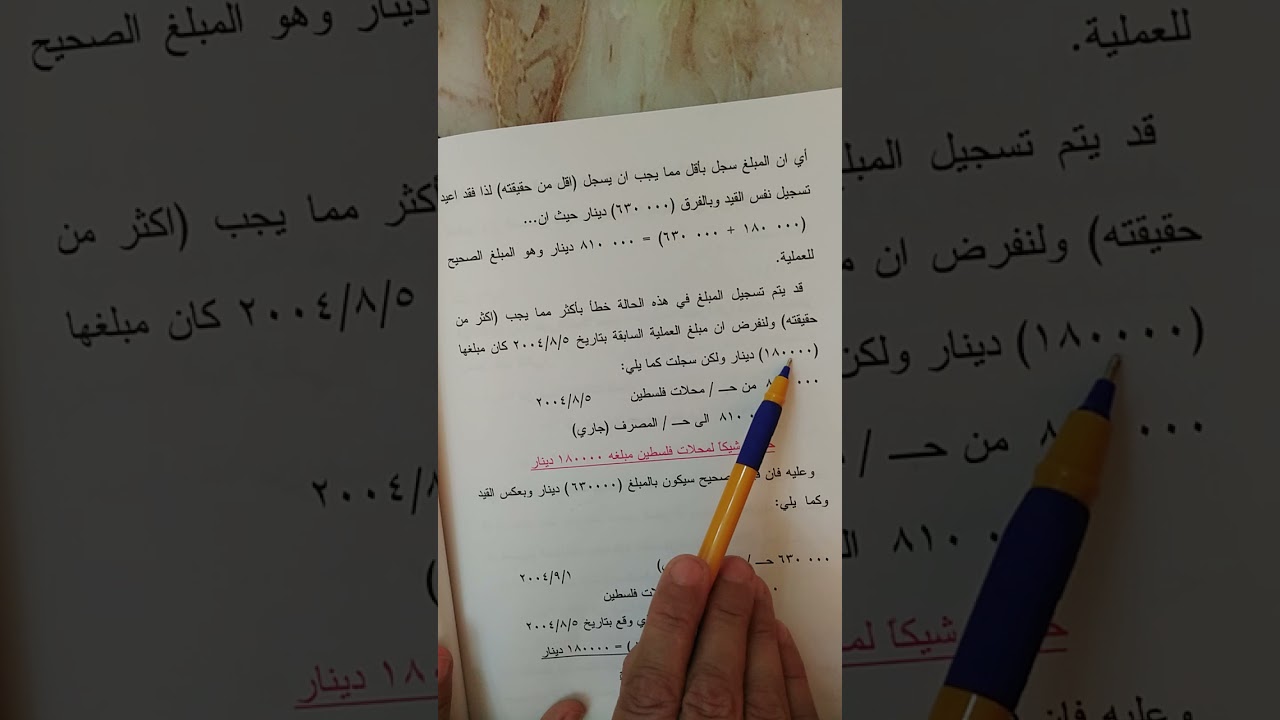 أي ان المبلغ سجل بأقل مما يجب ان يسجل (اقل من حقيقته) لذا فقد اعيد
تسجيل نفس القيد وبالفرق (٦٣٠ ٠٠٠) دينار حيث ان...
(١٨٠ ٠٠٠ + ٦٣٠ ٠٠٠) = ٨١٠ ٠٠٠ دينار وهو المبلغ الصحيح
للعملية.
قد يتم تسجيل المبلغ في هذه الحالة خطأ بأكثر مما يجب (اكثر من
حقيقته) ولنفرض ان مبلغ العملية السابقة بتاريخ ٢٠٠٤/٨/٥ كان مبلغها
(١٨٠٠٠٠) دينار ولكن سجلت كما يلي:
من حـ / محلات فلسطين ٢٠٠٤/٨/٥
٨١٠ الى حـ / المصرف (جاري)
شيكاً لمحلات فلسطين مبلغه ١٨٠٠٠٠ دينار
وعليه فان سيكون بالمبلغ (٦٣٠٠٠٠) دينار وبعكس القيد
وكما يلي:
٦٣٠ ٠٠٠ حـ / ٢٠٠٤/٩/١
فلسطين
وقع بتاريخ ٢٠٠٤/٨/٥
= ١٨٠٠٠٠ دينار